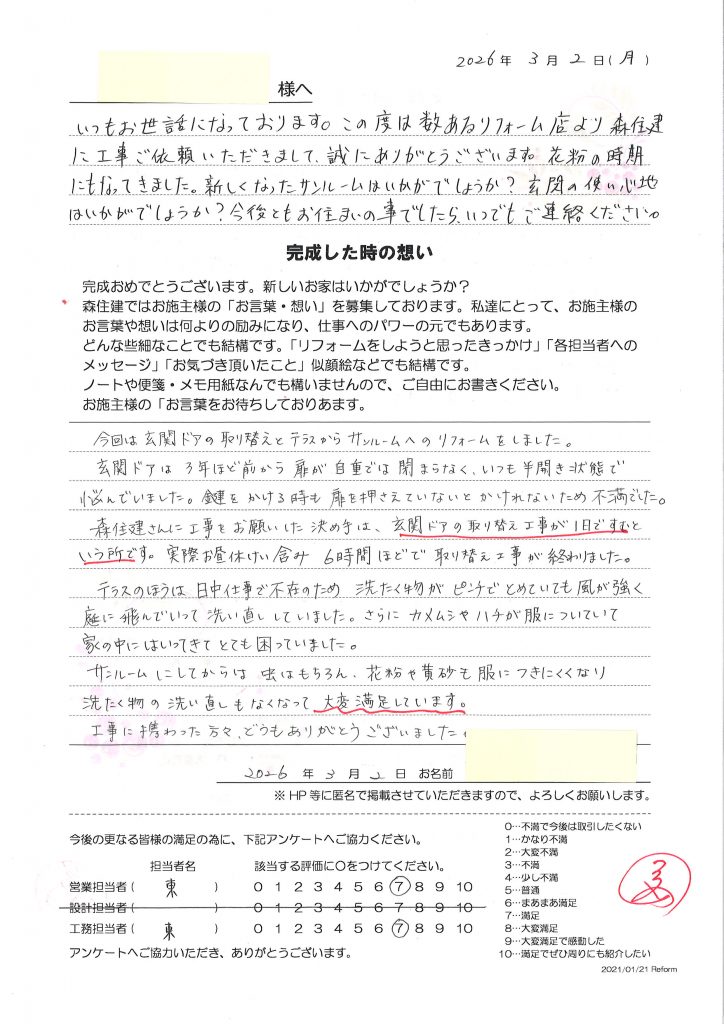 2026年 3月 2日(月)
様へ
いつもお世話になっております。この度は数あるリフォーム店より森住建
に工事ご依頼いただきまして、誠にありがとうございます。花粉の時期
にもなってきました。新しくなったサンルームはいかがでしょうか？玄関の使い心地
はいかがでしょうか？今後ともお住まいの事でしたら、いつでもご連絡ください。
完成した時の想い
完成おめでとうございます。新しいお家はいかがでしょうか？
森住建ではお施主様の「お言葉・想い」を募集しております。私達にとって、お施主様の
お言葉や想いは何よりの励みになり、仕事へのパワーの元でもあります。
どんな些細なことでも結構です。「リフォームをしようと思ったきっかけ」「各担当者への
メッセージ」「お気づき頂いたこと」似顔絵などでも結構です。
ノートや便箋・メモ用紙なんでも構いませんので、ご自由にお書きください。
お施主様の「お言葉をお待ちしておりあます。
今回は玄関ドアの取り替えとテラスからサンルームへのリフォームをしました。
玄関ドアは3年ほど前から扉が自重では閉まらなく、いつも半開き状態で
悩んでいました。鍵をかける時も扉を押さえていないとかけれないため不満でした。
森住建さんに工事をお願いした決め手は、玄関ドアの取り替え工事が1日ですむと
いう所です。実際お昼休けい含み6時間ほどで取り替え工事が終わりました。
テラスのほうは日中仕事で不在のため洗たく物がピンチでとめていても風が強く
庭に飛んでいって洗い直ししていました。さらにカメムシやハチが服についていて
家の中にはいってきてとても困っていました。
サンルームにしてからは虫はもちろん、花粉や黄砂も服につきにくくなり
洗たく物の洗い直しもなくなって大変満足しています。
工事に携わった方々、どうもありがとうございました。
2026年 3月 2日 お名前
※HP等に匿名で掲載させていただきますので、よろしくお願いします。
今後の更なる皆様の満足の為に、下記アンケートへご協力ください。
担当者名 該当する評価に○をつけてください。
営業担当者( 東 ) 0 1 2 3 4 5 6 7 8 9 10
設計担当者( ) 0 1 2 3 4 5 6 7 8 9 10
工務担当者( 東 ) 0 1 2 3 4 5 6 7 8 9 10
アンケートへご協力いただき、ありがとうございます。
0…不満で今後は取引したくない
1…かなり不満
2…大変不満
3…不満
4…少し不満
5…普通
6…まあまあ満足
7…満足
8…大変満足
9…大変満足で感動した
10…満足でぜひ周りにも紹介したい
2021/01/21 Reform